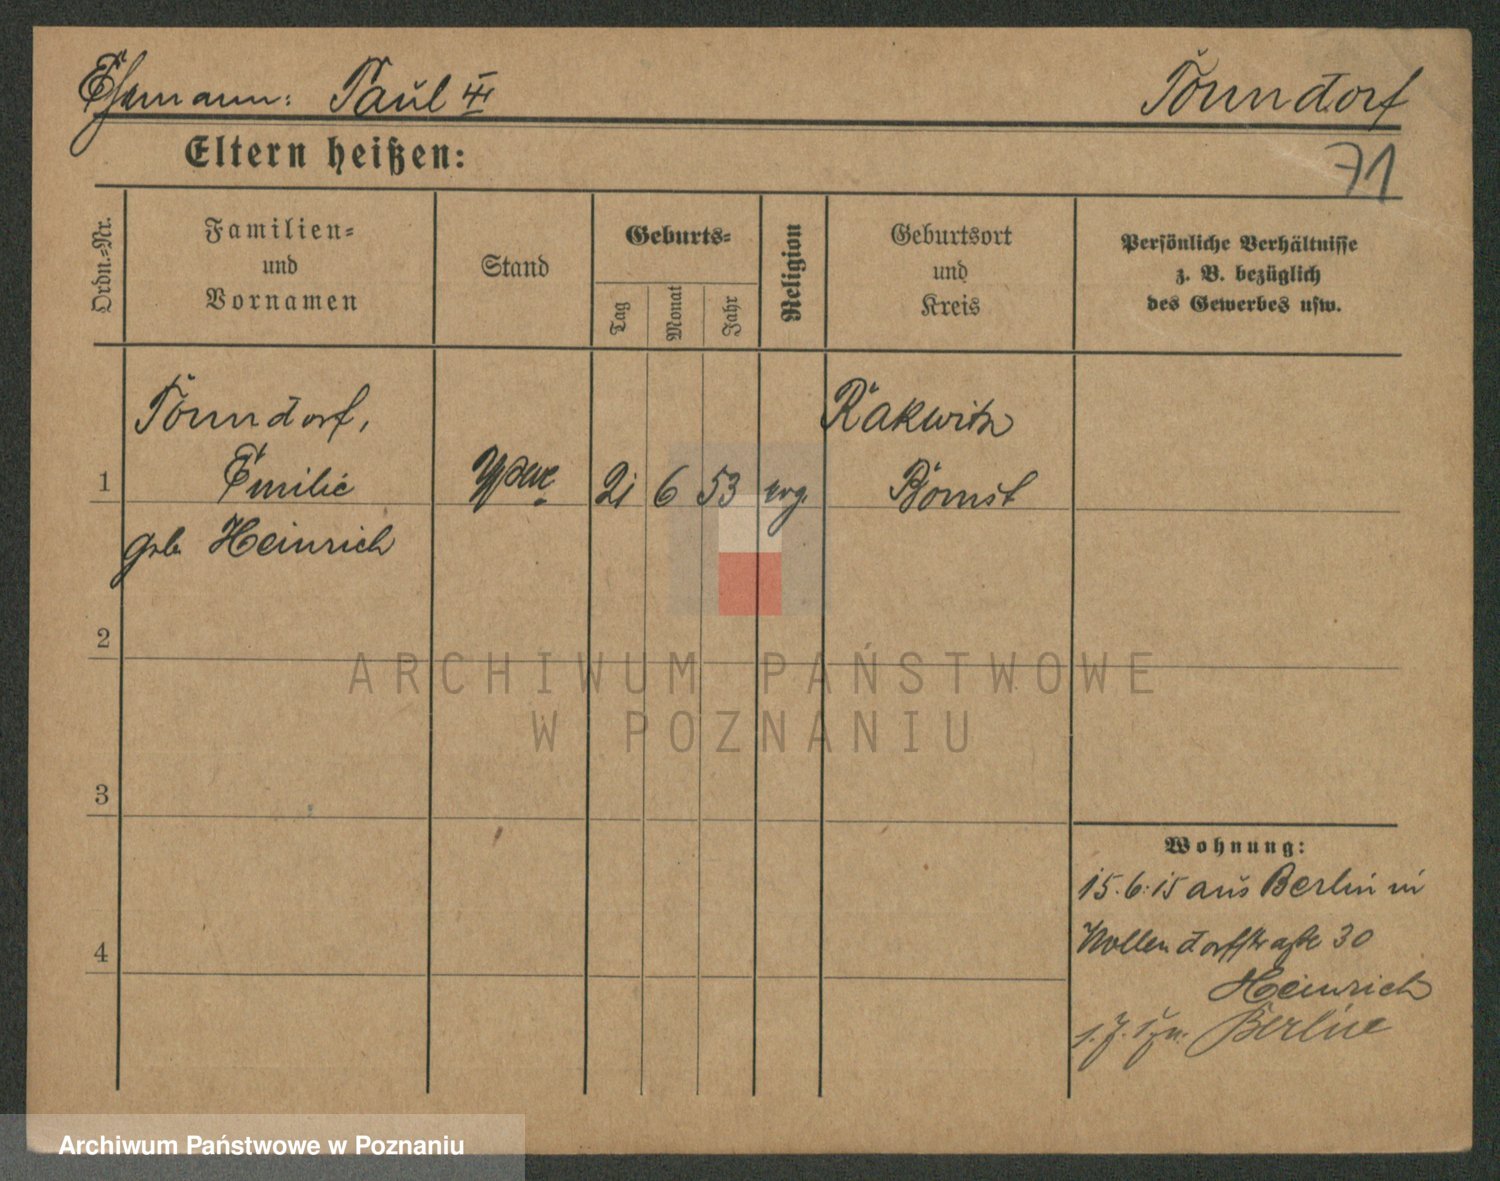 Ehemann: Paul III Tonndorf
71
Eltern heißen:
Ordn.-Nr.
Familien-
und
Vornamen
Stand
Geburts-
Tag
Monat
Jahr
Religion
Geburtsort
und
Kreis
Persönliche Verhältnisse
z. B. bezüglich
des Gewerbes usw.
Tonndorf,
Rakwitz
1 Emilie Wwe 21 6 53 evg. Bomst
geb. Heinrich
2
3
4
Wohnung:
15.6.15 aus Berlin in
Nollendorfstraße 30
Heinrich
Berlin
ARCHIWUM PAŃSTWOWE
W POZNANIU
Archiwum Państwowe w Poznaniu